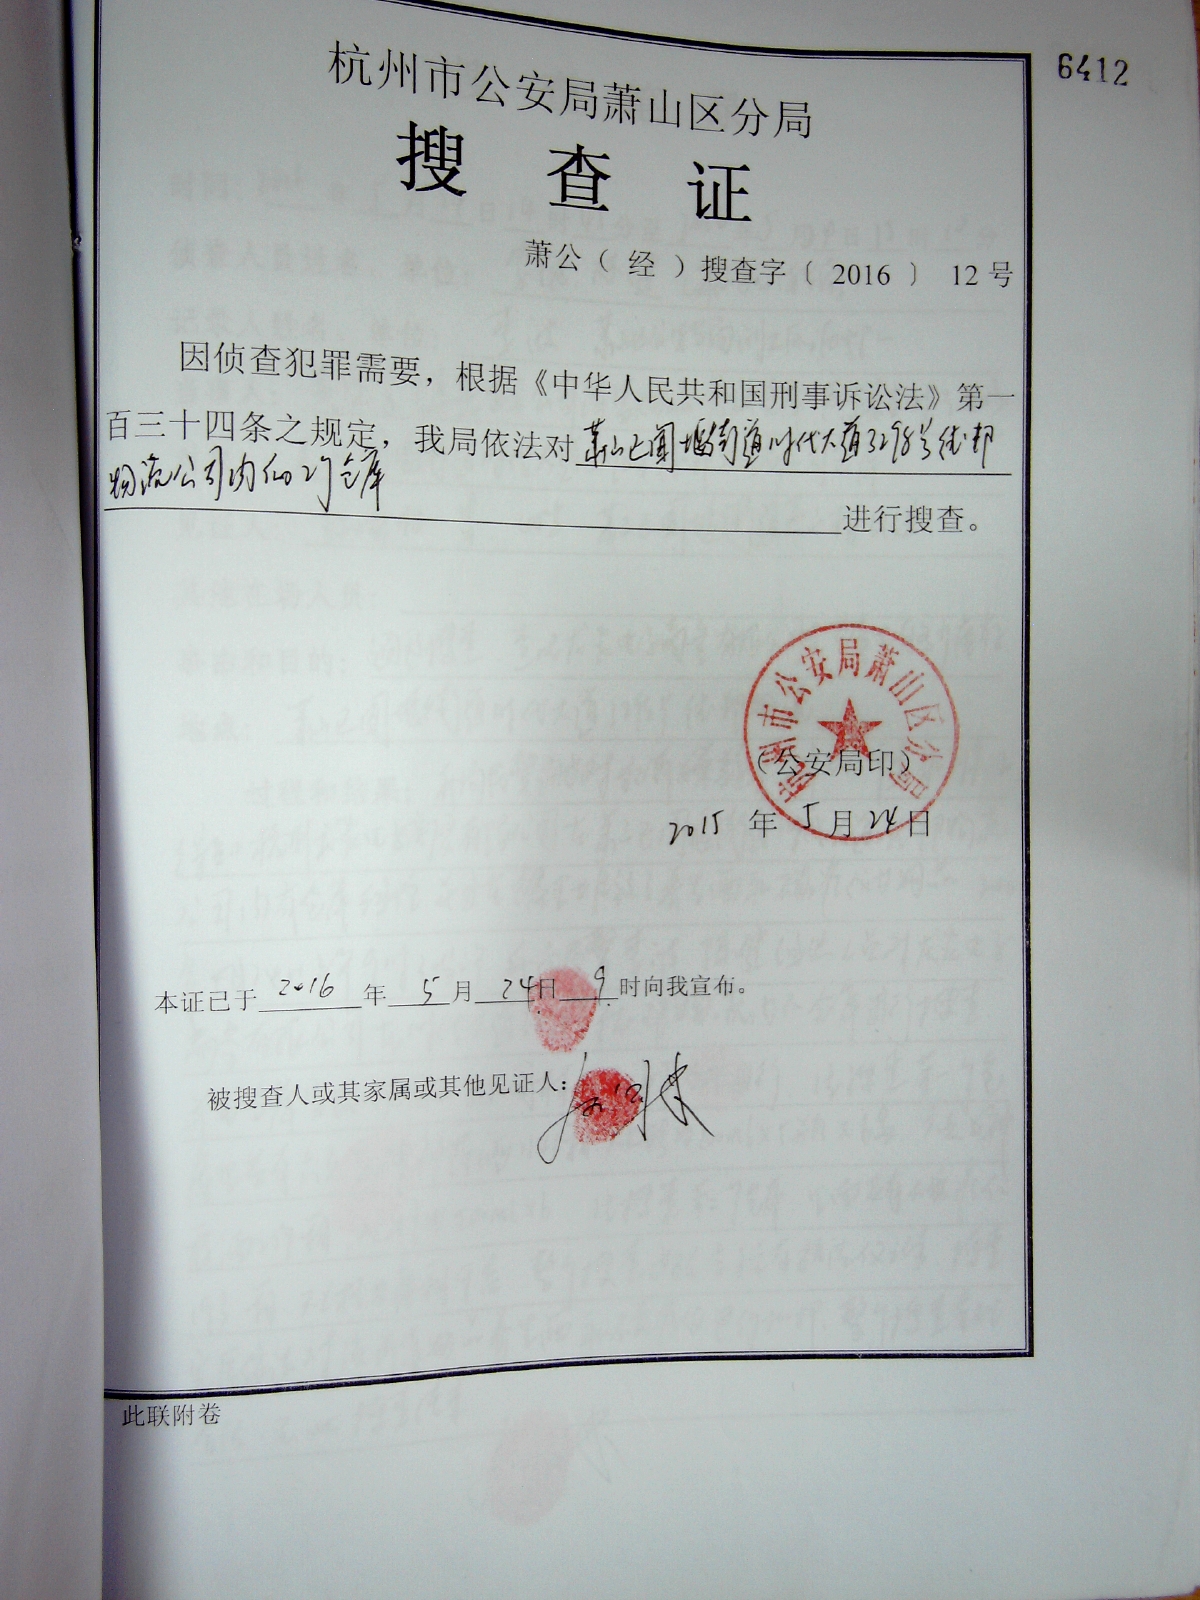 6412
杭州市公安局萧山区分局
搜查证
萧公（经）搜查字〔2016〕12号
因侦查犯罪需要，根据《中华人民共和国刑事诉讼法》第一
百三十四条之规定，我局依法对萧山区闻堰街道时代大道3298号德邦
物流公司内仙ㄐ仓库
进行搜查。
杭州市公安局萧山区分局
（公安局印）
2015年5月24日
本证已于2016年5月24日9时向我宣布。
被搜查人或其家属或其他见证人：
此联附卷